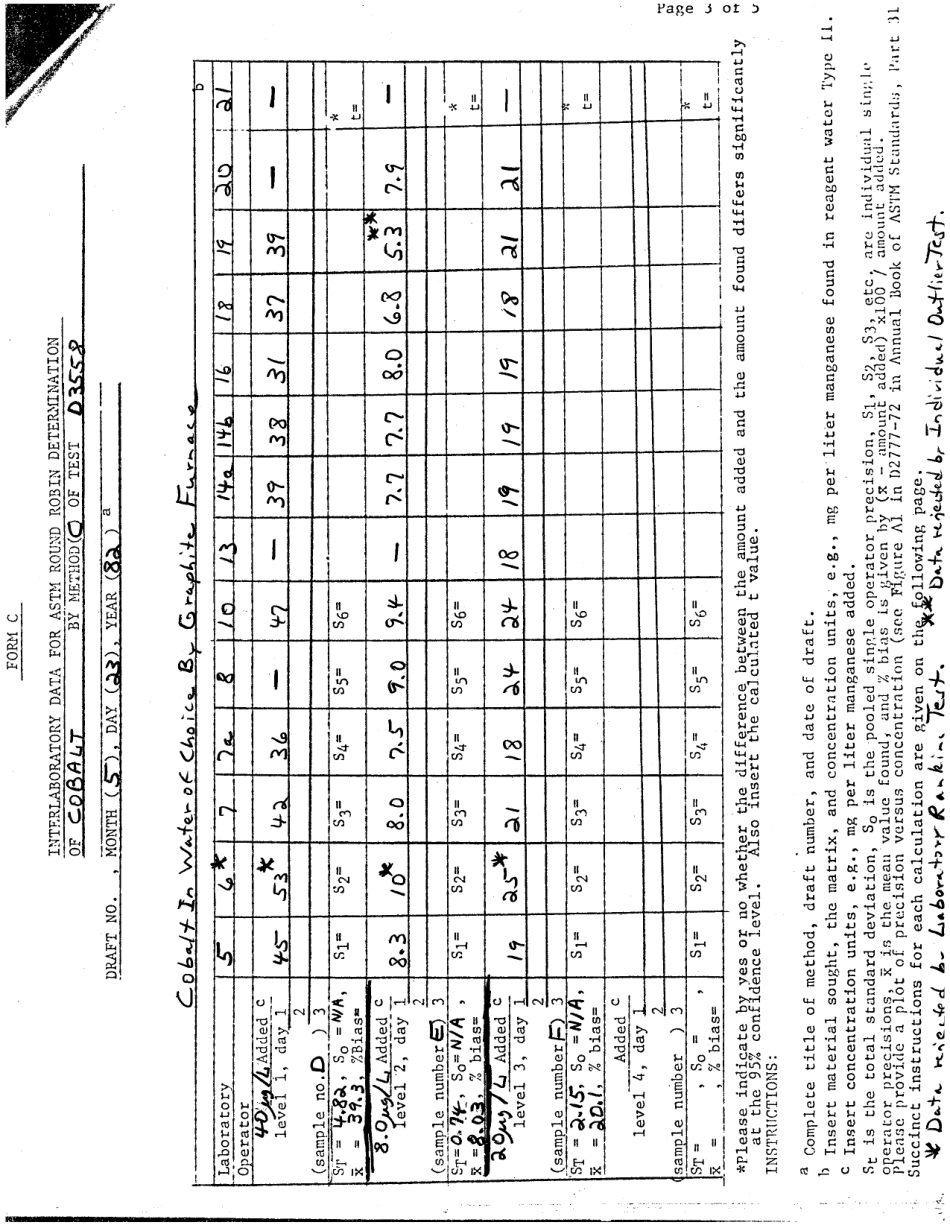 Page 3 of 5
FORM C
INTERLABORATORY DATA FOR ASTM ROUND ROBIN DETERMINATION
OF COBALT BY METHOD(C) OF TEST D3558
DRAFT NO. , MONTH (5), DAY (23), YEAR (82) a
Cobalt In Water of Choice By Graphite Furnace b
Laboratory 5 6* 7 7a 8 10 13 14a 14b 16 18 19 20 21
Operator
40 µg/L Added c 45 53* 42 36 — 47 — 39 38 31 37 39 — —
level 1, day 1
2
(sample no. D ) 3
ST = 4.82, So = N/A, S1= S2= S3= S4= S5= S6= * t=
x̄ = 39.3, %Bias=
8.0 µg/L Added c 8.3 10* 8.0 7.5 9.0 9.4 — 7.7 7.7 8.0 6.8 5.3** 7.9 —
level 2, day 1
2
(sample number E) 3
ST=0.74, So=N/A , S1= S2= S3= S4= S5= S6= * t=
x̄ = 8.03, % bias=
20 µg/L Added c 19 25* 21 18 24 24 18 19 19 19 18 21 21 —
level 3, day 1
2
(sample number F) 3
ST = 2.15, So = N/A, S1= S2= S3= S4= S5= S6= * t=
x̄ = 20.1, % bias=
Added c
level 4, day 1
2
(sample number ) 3
ST = , So = , S1= S2= S3= S4= S5= S6= * t=
x̄ = , % bias=
*Please indicate by yes or no whether the difference between the amount added and the amount found differs significantly
at the 95% confidence level. Also insert the calculated t value.
INSTRUCTIONS:
a Complete title of method, draft number, and date of draft.
b Insert material sought, the matrix, and concentration units, e.g., mg per liter manganese found in reagent water Type II.
c Insert concentration units, e.g., mg per liter manganese added.
St is the total standard deviation, So is the pooled single operator precision, S1, S2, S3, etc, are individual single
operator precisions, x̄ is the mean value found, and % bias is given by (x̄ - amount added) x100 / amount added.
Please provide a plot of precision versus concentration (see Figure A1 in D2777-72 in Annual Book of ASTM Standards, Part 31
Succinct instructions for each calculation are given on the following page.
* Data rejected by Laboratory Ranking Test. ** Data rejected by Individual Outlier Test.